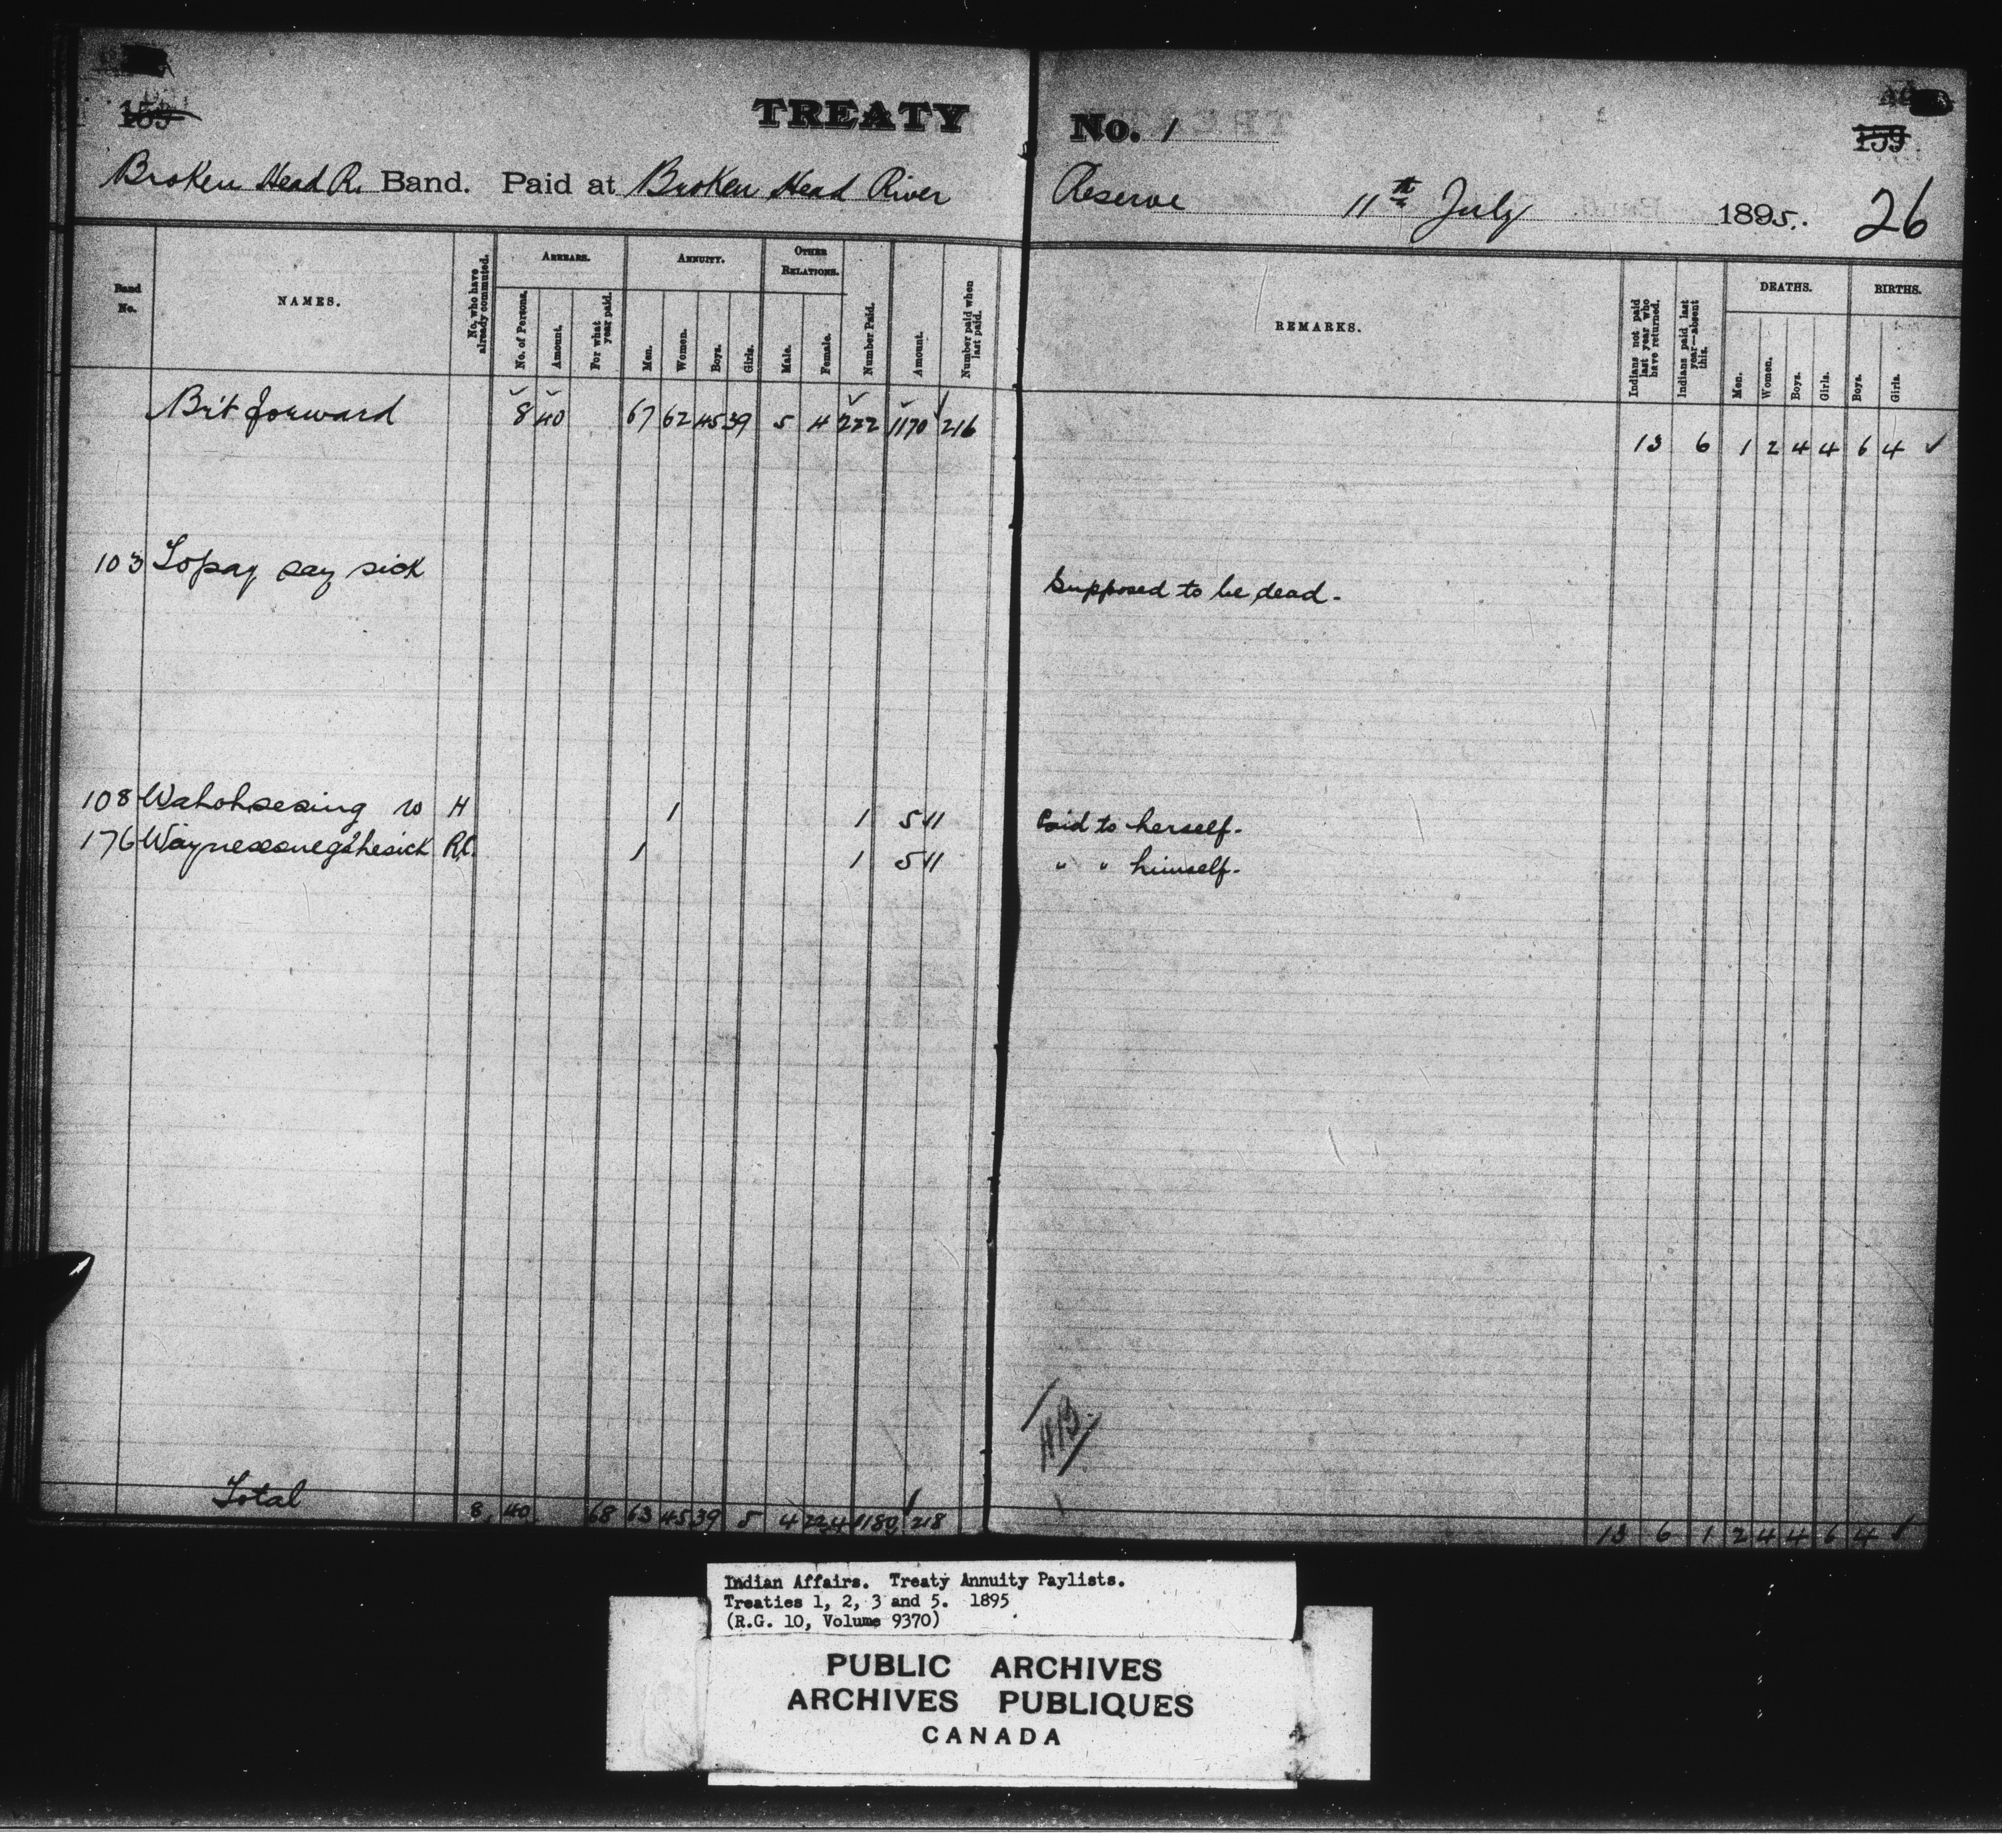 159
TREATY
No. 1
159
Broken Head R. Band. Paid at Broken Head River
Reserve 11th July 1895. 26
Band No.
NAMES.
No. who have already commuted.
ARREARS.
No. of Persons.
Amount.
For what year paid.
ANNUITY.
Men.
Women.
Boys.
Girls.
OTHER RELATIONS.
Male.
Female.
Number Paid.
Amount.
Number paid when last paid.
REMARKS.
Indians not paid last year who have returned.
Indians paid last year—absent this.
DEATHS.
Men.
Women.
Boys.
Girls.
BIRTHS.
Boys.
Girls.
Brt forward 8 40 67 62 45 39 5 4 222 1170 216
13 6 1 2 4 4 6 4 ✓
103 Topay say sick
Supposed to be dead.
108 Wahohsesing w H 1 1 5 1
Paid to herself.
176 R.C. 1 1 5 1
" " himself.
Total 8 40 68 63 45 39 5 4 224 1180 218
13 6 1 2 4 4 6 4 ✓
Indian Affairs. Treaty Annuity Paylists.
Treaties 1, 2, 3 and 5. 1895
(R.G. 10, Volume 9370)
PUBLIC ARCHIVES
ARCHIVES PUBLIQUES
CANADA